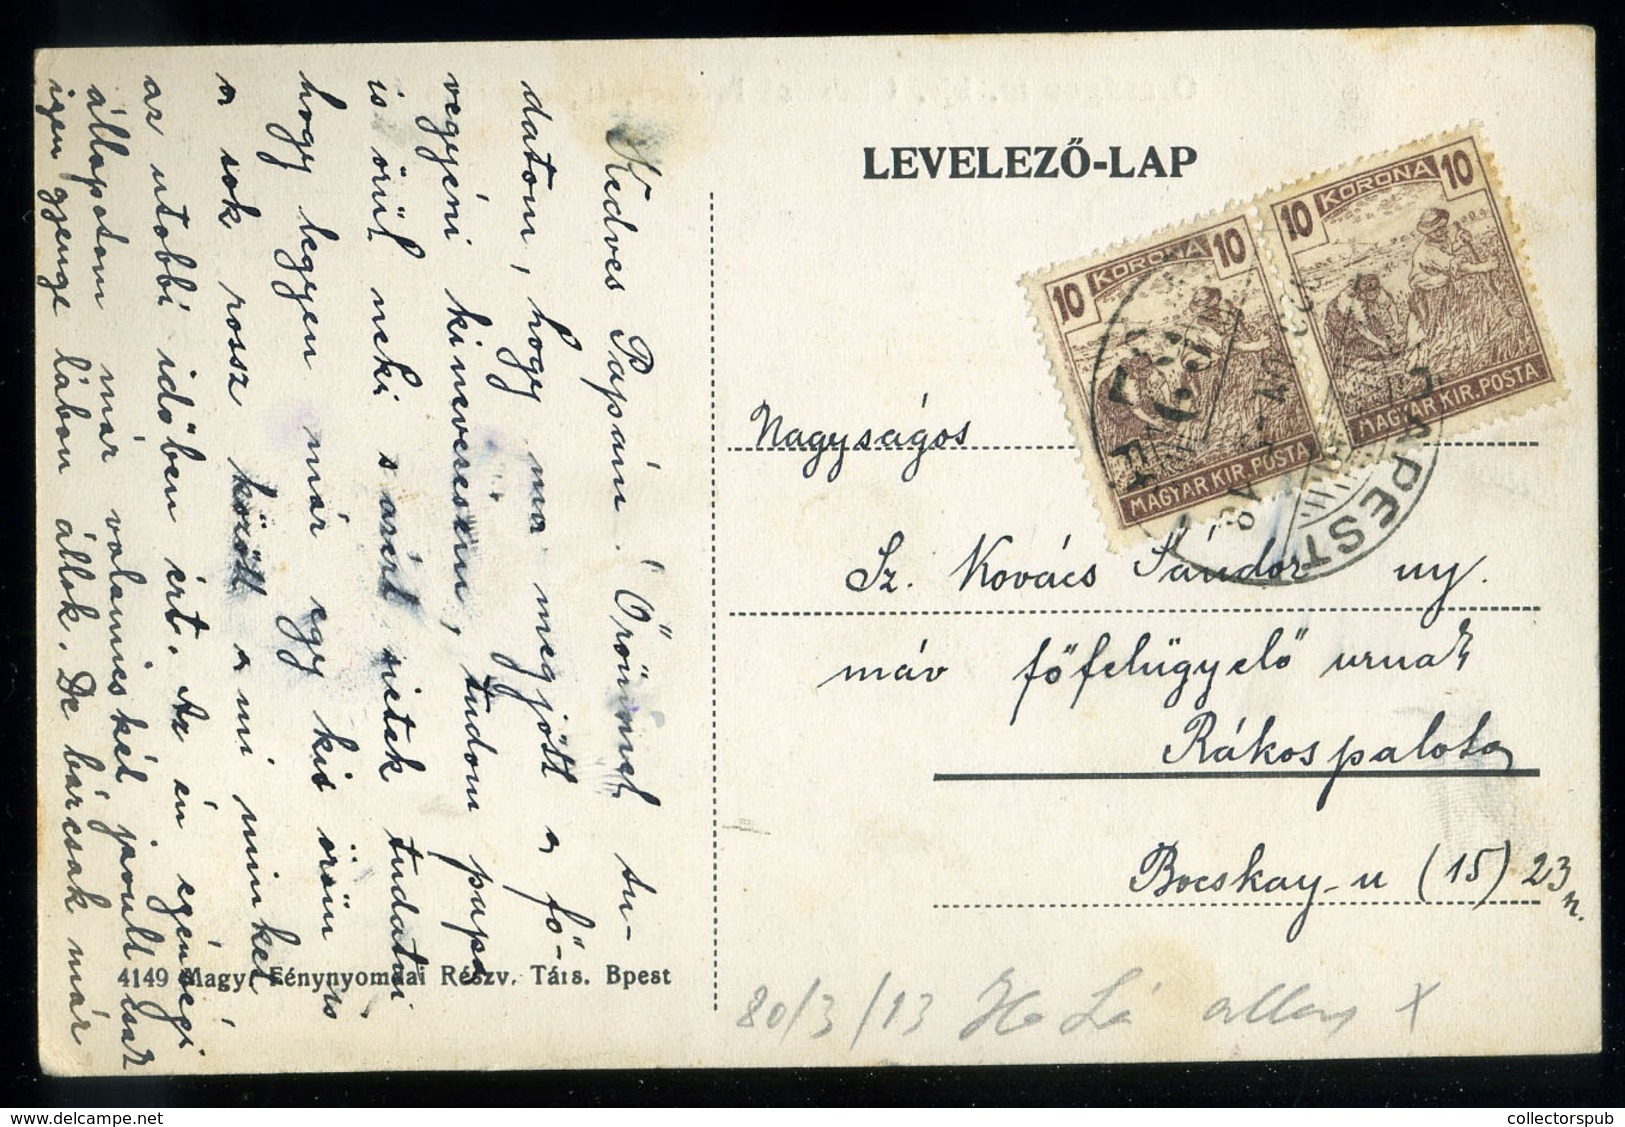 LEVELEZŐ-LAP
10 KORONA 10
MAGYAR KIR. POSTA
10 KORONA 10
MAGYAR KIR. POSTA
PEST
Kedves Papám! Örömmel tu-
datom, hogy ma megjött a fő-
vegyéni kinevezésem, tudom papa
is örül neki s azért sietek tudatni
hogy legyen már egy kis öröm is
a sok rossz között a mi minket
az utobbi időben ért. Az én egészségi
állapotom már valamicskét javult csak
igen gyenge lábon állok. De bárcsak már
Nagyságos
Sz. Kovács Sándor ny.
máv főfelügyelő urnak
Rákospalota
Bocskay-u (15) 23
4149 Magy. Fénynyomdai Részv. Társ. Bpest
80/3/13
collectorspub